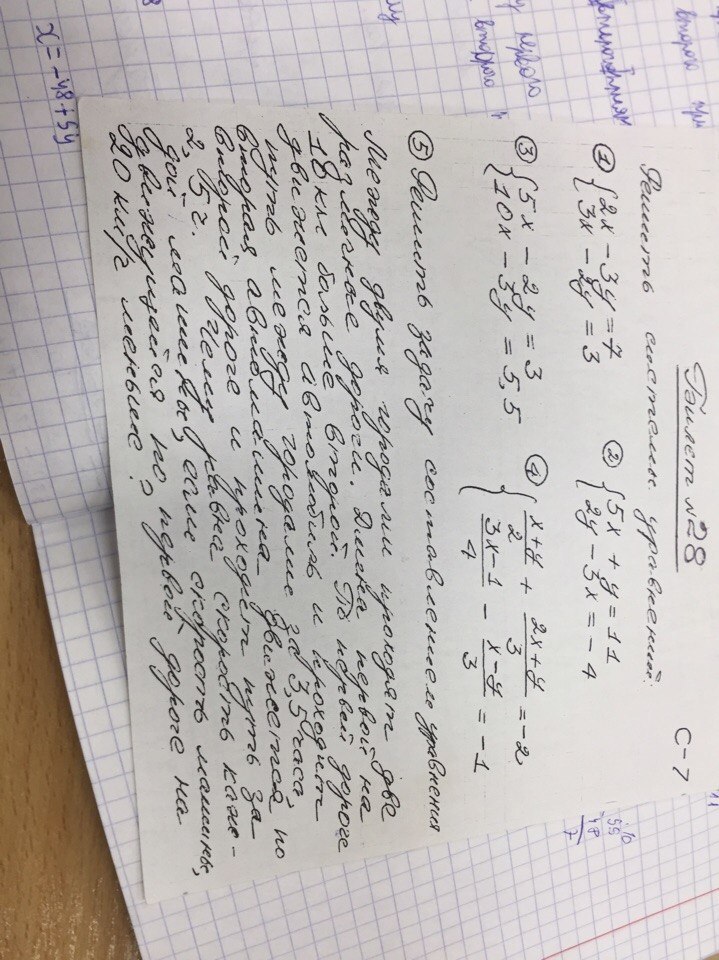 Билет №28
С-7
Решить системы уравнений:
① { 2x - 3y = 7
3x - 2y = 3
② { 5x + y = 11
2y - 3x = -4
③ { 5x - 2y = 3
10x - 3y = 5,5
④ { x+y/2 + 2x+y/3 = -2
3x-1/4 - x-y/3 = -1
⑤ Решить задачу составлением уравнения
Между двумя городами проходят две
различные дороги. Длина первой на
18 км больше второй. По первой дороге
движется автомобиль и проходит
путь между городами за 3,5 часа,
вторая автомашина движется по
второй дороге и проходит путь за
2,75 ч. Чему равна скорость каж-
дой машины, если скорость машины,
движущейся по первой дороге на
20 км/ч меньше?
x = -48 + 5y
второго при